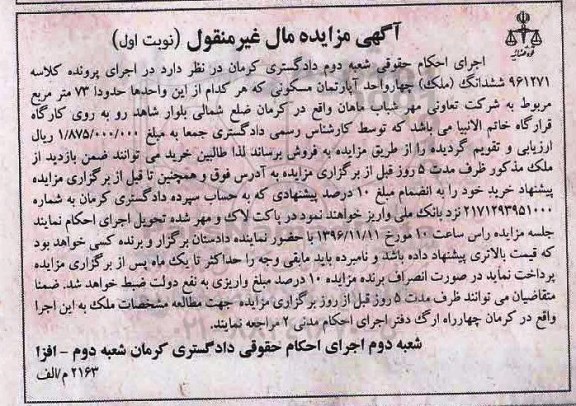 آگهی مزایده مال غیرمنقول (نوبت اول)
اجرای احکام حقوقی شعبه دوم دادگستری کرمان در نظر دارد در اجرای پرونده کلاسه
۹۶۱۲۷۱ ششدانگ (ملک) چهارواحد آپارتمان مسکونی که هر کدام از این واحدها حدودا ۷۳ متر مربع
مربوط به شرکت تعاونی مهر شباب ماهان واقع در کرمان ضلع شمالی بلوار شاهد رو به روی کارگاه
قرارگاه خاتم الانبیا می باشد که توسط کارشناس رسمی دادگستری جمعا به مبلغ ۱/۸۷۵/۰۰۰/۰۰۰ ریال
ارزیابی و تقویم گردیده را از طریق مزایده به فروش برساند لذا طالبین خرید می توانند ضمن بازدید از
ملک مذکور ظرف مدت ۵ روز قبل از برگزاری مزایده به آدرس فوق و همچنین تا قبل از برگزاری مزایده
پیشنهاد خرید خود را به انضمام مبلغ ۱۰ درصد پیشنهادی که به حساب سپرده دادگستری کرمان به شماره
۲۱۷۱۲۹۳۹۵۱۰۰۰ نزد بانک ملی واریز خواهند نمود در پاکت لاک و مهر شده تحویل اجرای احکام نمایند
جلسه مزایده راس ساعت ۱۰ مورخ ۱۳۹۶/۱۱/۱۱ با حضور نماینده دادستان برگزار و برنده کسی خواهد بود
که قیمت بالاتری پیشنهاد داده باشد و نامبرده باید مابقی وجه را حداکثر تا یک ماه پس از برگزاری مزایده
پرداخت نماید در صورت انصراف برنده مزایده ۱۰ درصد مبلغ واریزی به نفع دولت ضبط خواهد شد. ضمنا
متقاضیان می توانند ظرف مدت ۵ روز قبل از روز برگزاری مزایده جهت مطالعه مشخصات ملک به این اجرا
واقع در کرمان چهارراه ارگ دفتر اجرای احکام مدنی ۲ مراجعه نمایند.
شعبه دوم اجرای احکام حقوقی دادگستری کرمان شعبه دوم - افزا
۲۱۶۳ م/الف